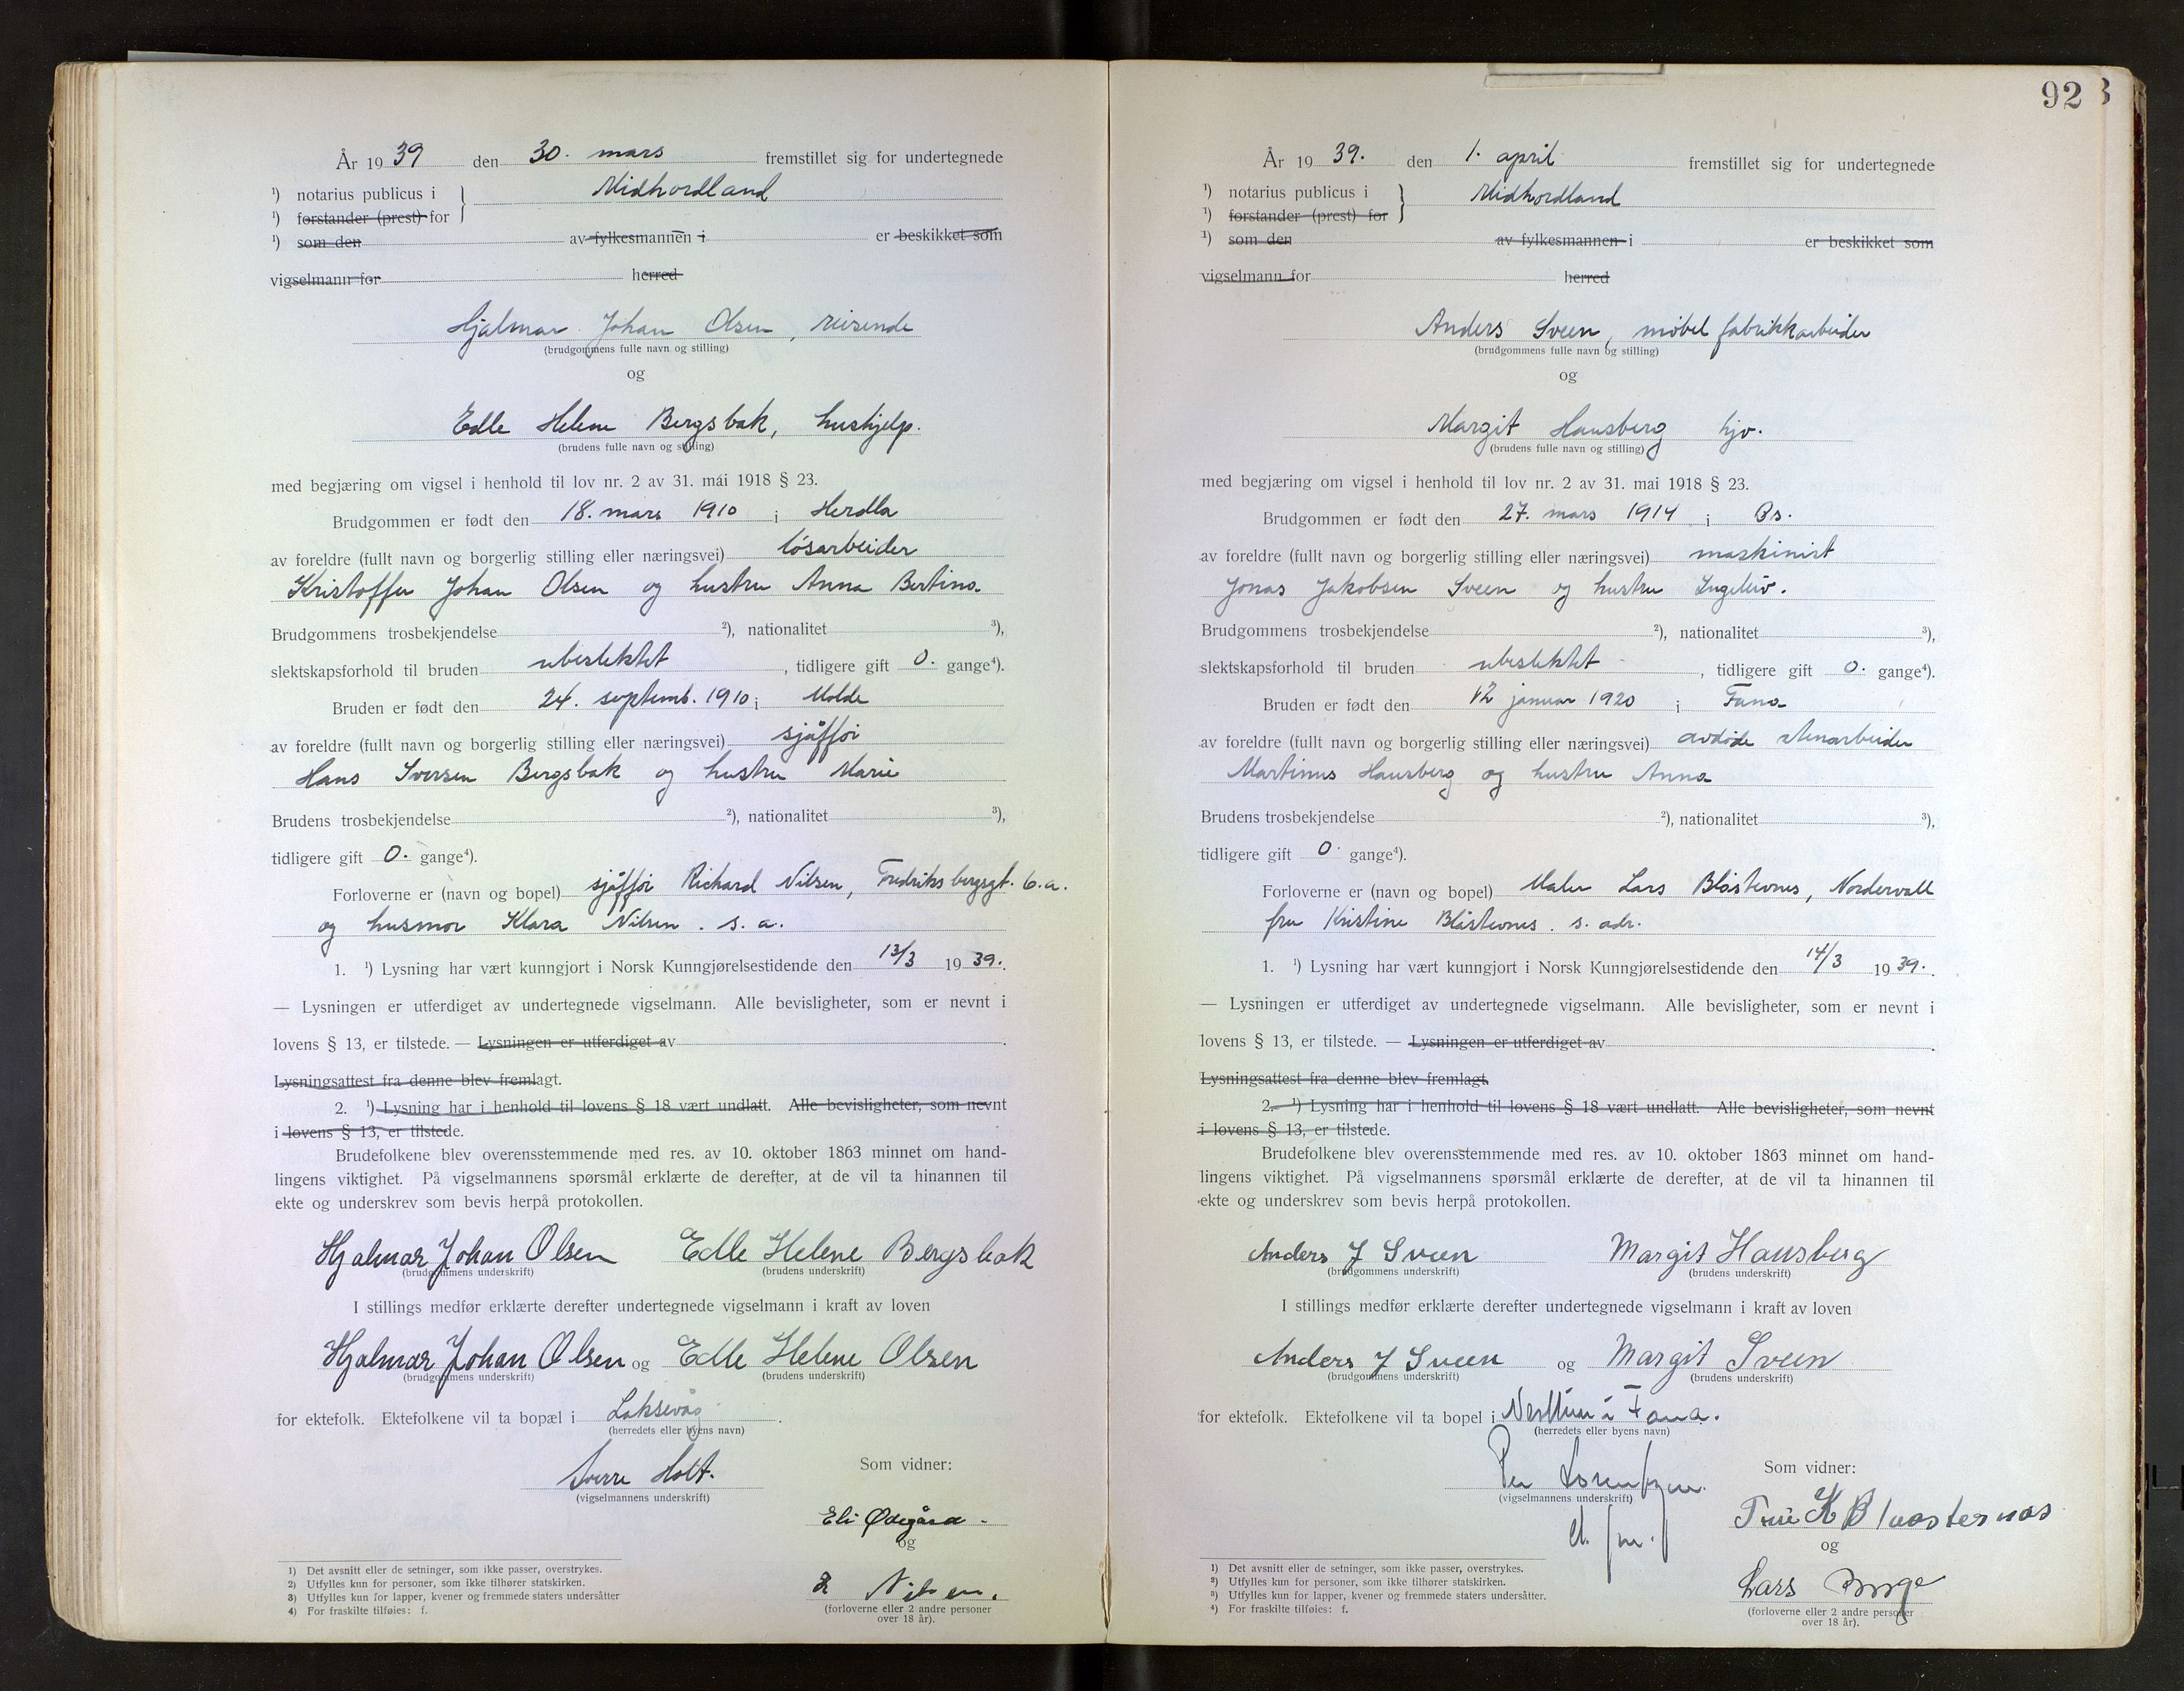 År 1939 den 30. mars fremstillet sig for undertegnede
¹) notarius publicus i } Midhordland
¹) forstander (prest) for
¹) som den av fylkesmannen i er beskikket som
vigselmann for herred
Hjalmar Johan Olsen, reisende
(brudgommens fulle navn og stilling)
og
Edle Helene Bergsbak, hushjelp.
(brudens fulle navn og stilling)
med begjæring om vigsel i henhold til lov nr. 2 av 31. mai 1918 § 23.
Brudgommen er født den 18. mars 1910 i Herdla
av foreldre (fullt navn og borgerlig stilling eller næringsvei) løsarbeider
Kristoffer Johan Olsen og hustru Anna Bertina.
Brudgommens trosbekjendelse ²), nationalitet ³),
slektskapsforhold til bruden ubeslektet, tidligere gift 0. gange⁴).
Bruden er født den 24. septemb. 1910 i Molde
av foreldre (fullt navn og borgerlig stilling eller næringsvei) sjåffør
Hans Iversen Bergsbak og hustru Marie
Brudens trosbekjendelse ²), nationalitet ³),
tidligere gift 0. gange⁴).
Forloverne er (navn og bopel) sjåffør Richard Nilsen, Fredriksbergsgt. 6.a.
og husmor Klara Nilsen. s. a.
1. ¹) Lysning har vært kunngjort i Norsk Kunngjørelsestidende den 13/3 1939.
— Lysningen er utferdiget av undertegnede vigselmann. Alle bevisligheter, som er nevnt i
lovens § 13, er tilstede. — Lysningen er utferdiget av .
Lysningsattest fra denne blev fremlagt.
2. ¹) Lysning har i henhold til lovens § 18 vært undlatt. Alle bevisligheter, som nevnt
i lovens § 13, er tilstede.
Brudefolkene blev overensstemmende med res. av 10. oktober 1863 minnet om hand-
lingens viktighet. På vigselmannens spørsmål erklærte de derefter, at de vil ta hinannen til
ekte og underskrev som bevis herpå protokollen.
Hjalmar Johan Olsen Edle Helene Bergsbak
(brudgommens underskrift) (brudens underskrift)
I stillings medfør erklærte derefter undertegnede vigselmann i kraft av loven
Hjalmar Johan Olsen og Edle Helene Olsen
(brudgommens underskrift) (brudens underskrift)
for ektefolk. Ektefolkene vil ta bopæl i Laksevåg.
(herredets eller byens navn)
Sverre Holt.
(vigselmannens underskrift)
Som vidner:
Eli Ødegård
og
R Nilsen.
(forloverne eller 2 andre personer
over 18 år).
1) Det avsnitt eller de setninger, som ikke passer, overstrykes.
2) Utfylles kun for personer, som ikke tilhører statskirken.
3) Utfylles kun for lapper, kvener og fremmede staters undersåtter
4) For fraskilte tilføies: f.
92
År 1939. den 1. april fremstillet sig for undertegnede
¹) notarius publicus i } Midhordland
¹) forstander (prest) for
¹) som den av fylkesmannen i er beskikket som
vigselmann for herred
Anders Sveen, møbelfabrikkarbeider
(brudgommens fulle navn og stilling)
og
Margit Hausberg hjv.
(brudens fulle navn og stilling)
med begjæring om vigsel i henhold til lov nr. 2 av 31. mai 1918 § 23.
Brudgommen er født den 27. mars 1914 i Os.
av foreldre (fullt navn og borgerlig stilling eller næringsvei) maskinist
Jonas Jakobsen Sveen og hustru Ingeleiv.
Brudgommens trosbekjendelse ²), nationalitet ³),
slektskapsforhold til bruden ubeslektet, tidligere gift 0. gange⁴).
Bruden er født den 12 januar 1920 i Fana
av foreldre (fullt navn og borgerlig stilling eller næringsvei) avdøde stenarbeider
Martinus Hausberg og hustru Anna
Brudens trosbekjendelse ²), nationalitet ³),
tidligere gift 0. gange⁴).
Forloverne er (navn og bopel) Maler Lars Blåsternes, Nordervoll
fru Kristine Blåsternes. s. adr.
1. ¹) Lysning har vært kunngjort i Norsk Kunngjørelsestidende den 14/3 1939.
— Lysningen er utferdiget av undertegnede vigselmann. Alle bevisligheter, som er nevnt i
lovens § 13, er tilstede. — Lysningen er utferdiget av .
Lysningsattest fra denne blev fremlagt.
2. ¹) Lysning har i henhold til lovens § 18 vært undlatt. Alle bevisligheter, som nevnt
i lovens § 13, er tilstede.
Brudefolkene blev overensstemmende med res. av 10. oktober 1863 minnet om hand-
lingens viktighet. På vigselmannens spørsmål erklærte de derefter, at de vil ta hinannen til
ekte og underskrev som bevis herpå protokollen.
Anders J Sveen Margit Hausberg
(brudgommens underskrift) (brudens underskrift)
I stillings medfør erklærte derefter undertegnede vigselmann i kraft av loven
Anders J Sveen og Margit Sveen
(brudgommens underskrift) (brudens underskrift)
for ektefolk. Ektefolkene vil ta bopel i Nesttun i Fana.
(herredets eller byens navn)
Per Lorentzen.
(vigselmannens underskrift)
Som vidner:
K Blaasternes
og
Lars
(forloverne eller 2 andre personer
over 18 år).
1) Det avsnitt eller de setninger, som ikke passer, overstrykes.
2) Utfylles kun for personer, som ikke tilhører statskirken.
3) Utfylles kun for lapper, kvener og fremmede staters undersåtter.
4) For fraskilte tilføies: f.